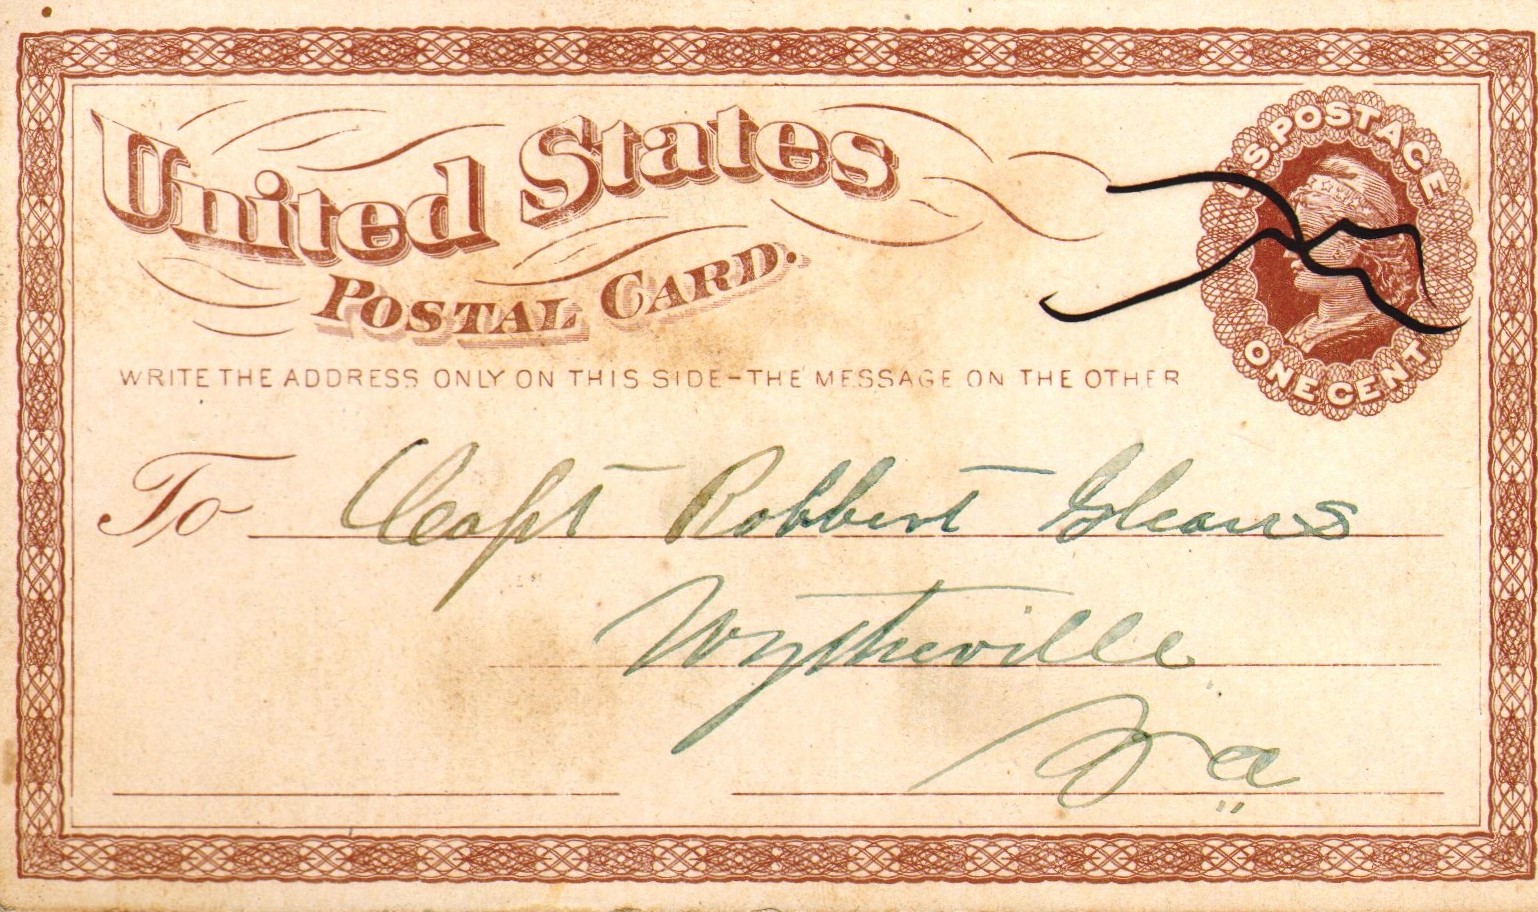 United States
POSTAL CARD.
U.S. POSTAGE
ONE CENT
WRITE THE ADDRESS ONLY ON THIS SIDE-THE MESSAGE ON THE OTHER
To Capt Robbert
Wytheville
Va